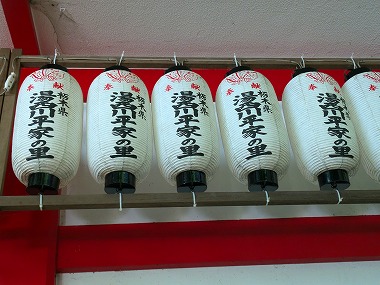 奉献
栃木県
湯西川平家の里
奉献
栃木県
湯西川平家の里
奉献
栃木県
湯西川平家の里
奉献
栃木県
湯西川平家の里
奉献
栃木県
湯西川平家の里
奉